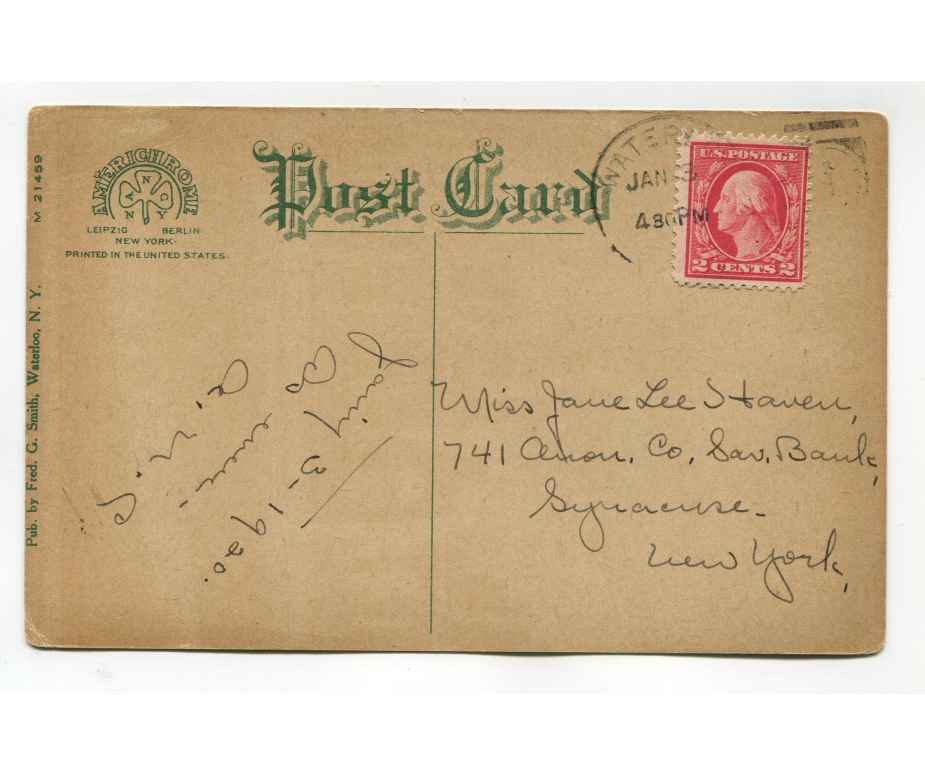 AMERICHROME
ANCY
LEIPZIG BERLIN
NEW YORK
PRINTED IN THE UNITED STATES.
M 21459
Pub. by Fred. G. Smith, Waterloo, N. Y.
Post Card
JAN 3
430PM
U.S. POSTAGE
2 CENTS 2
Miss Jane Lee Haven,
741 Onon. Co. Sav. Bank,
Syracuse-
New York,
3-1920.